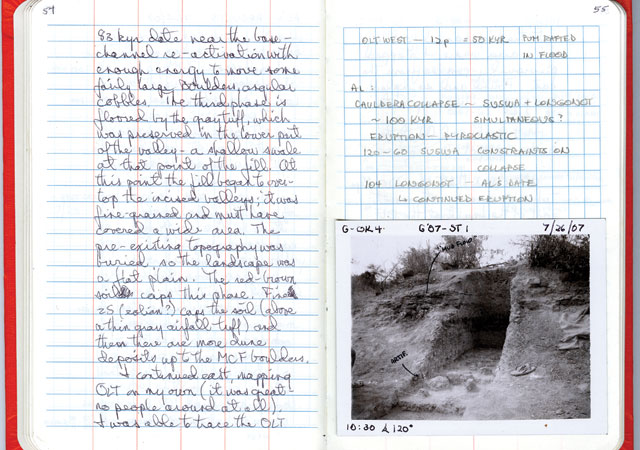 54
83 kyr date near the base-
channel re-activation with
enough energy to move some
fairly large boulders, angular
cobbles. The third phase is
floored by the gray tuff, which
was preserved in the lower part
of the valley - a shallow swale
at that point of the fill. At
this point the fill began to over-
top the incised valleys; it was
fine-grained and must have
covered a wide area. The
pre-existing topography was
buried, so the landscape was
a flat plain. The red-brown
soil caps this phase. Fine
(eolian?) caps the soil (above
a thin gray airfall tuff) and
then there are more dune
deposits up to the MCF boulders.
I continued east, mapping
OLT on my own (it was great-
no people around at all).
I was able to trace the OLT
55
OLT WEST - 12p = 50 KYR PUM RAFTED
IN FLOOD
AL:
CAULDERA COLLAPSE ~ SUSWA + LONGONOT
~ 100 KYR SIMULTANEOUS?
ERUPTION - PYROCLASTIC
120-60 SUSWA CONSTRAINTS ON
COLLAPSE
104 LONGONOT - AL'S DATE
↳ CONTINUED ERUPTION
G-OK4 G'07-ST1 7/26/07
ARTIF.
10:30 120°